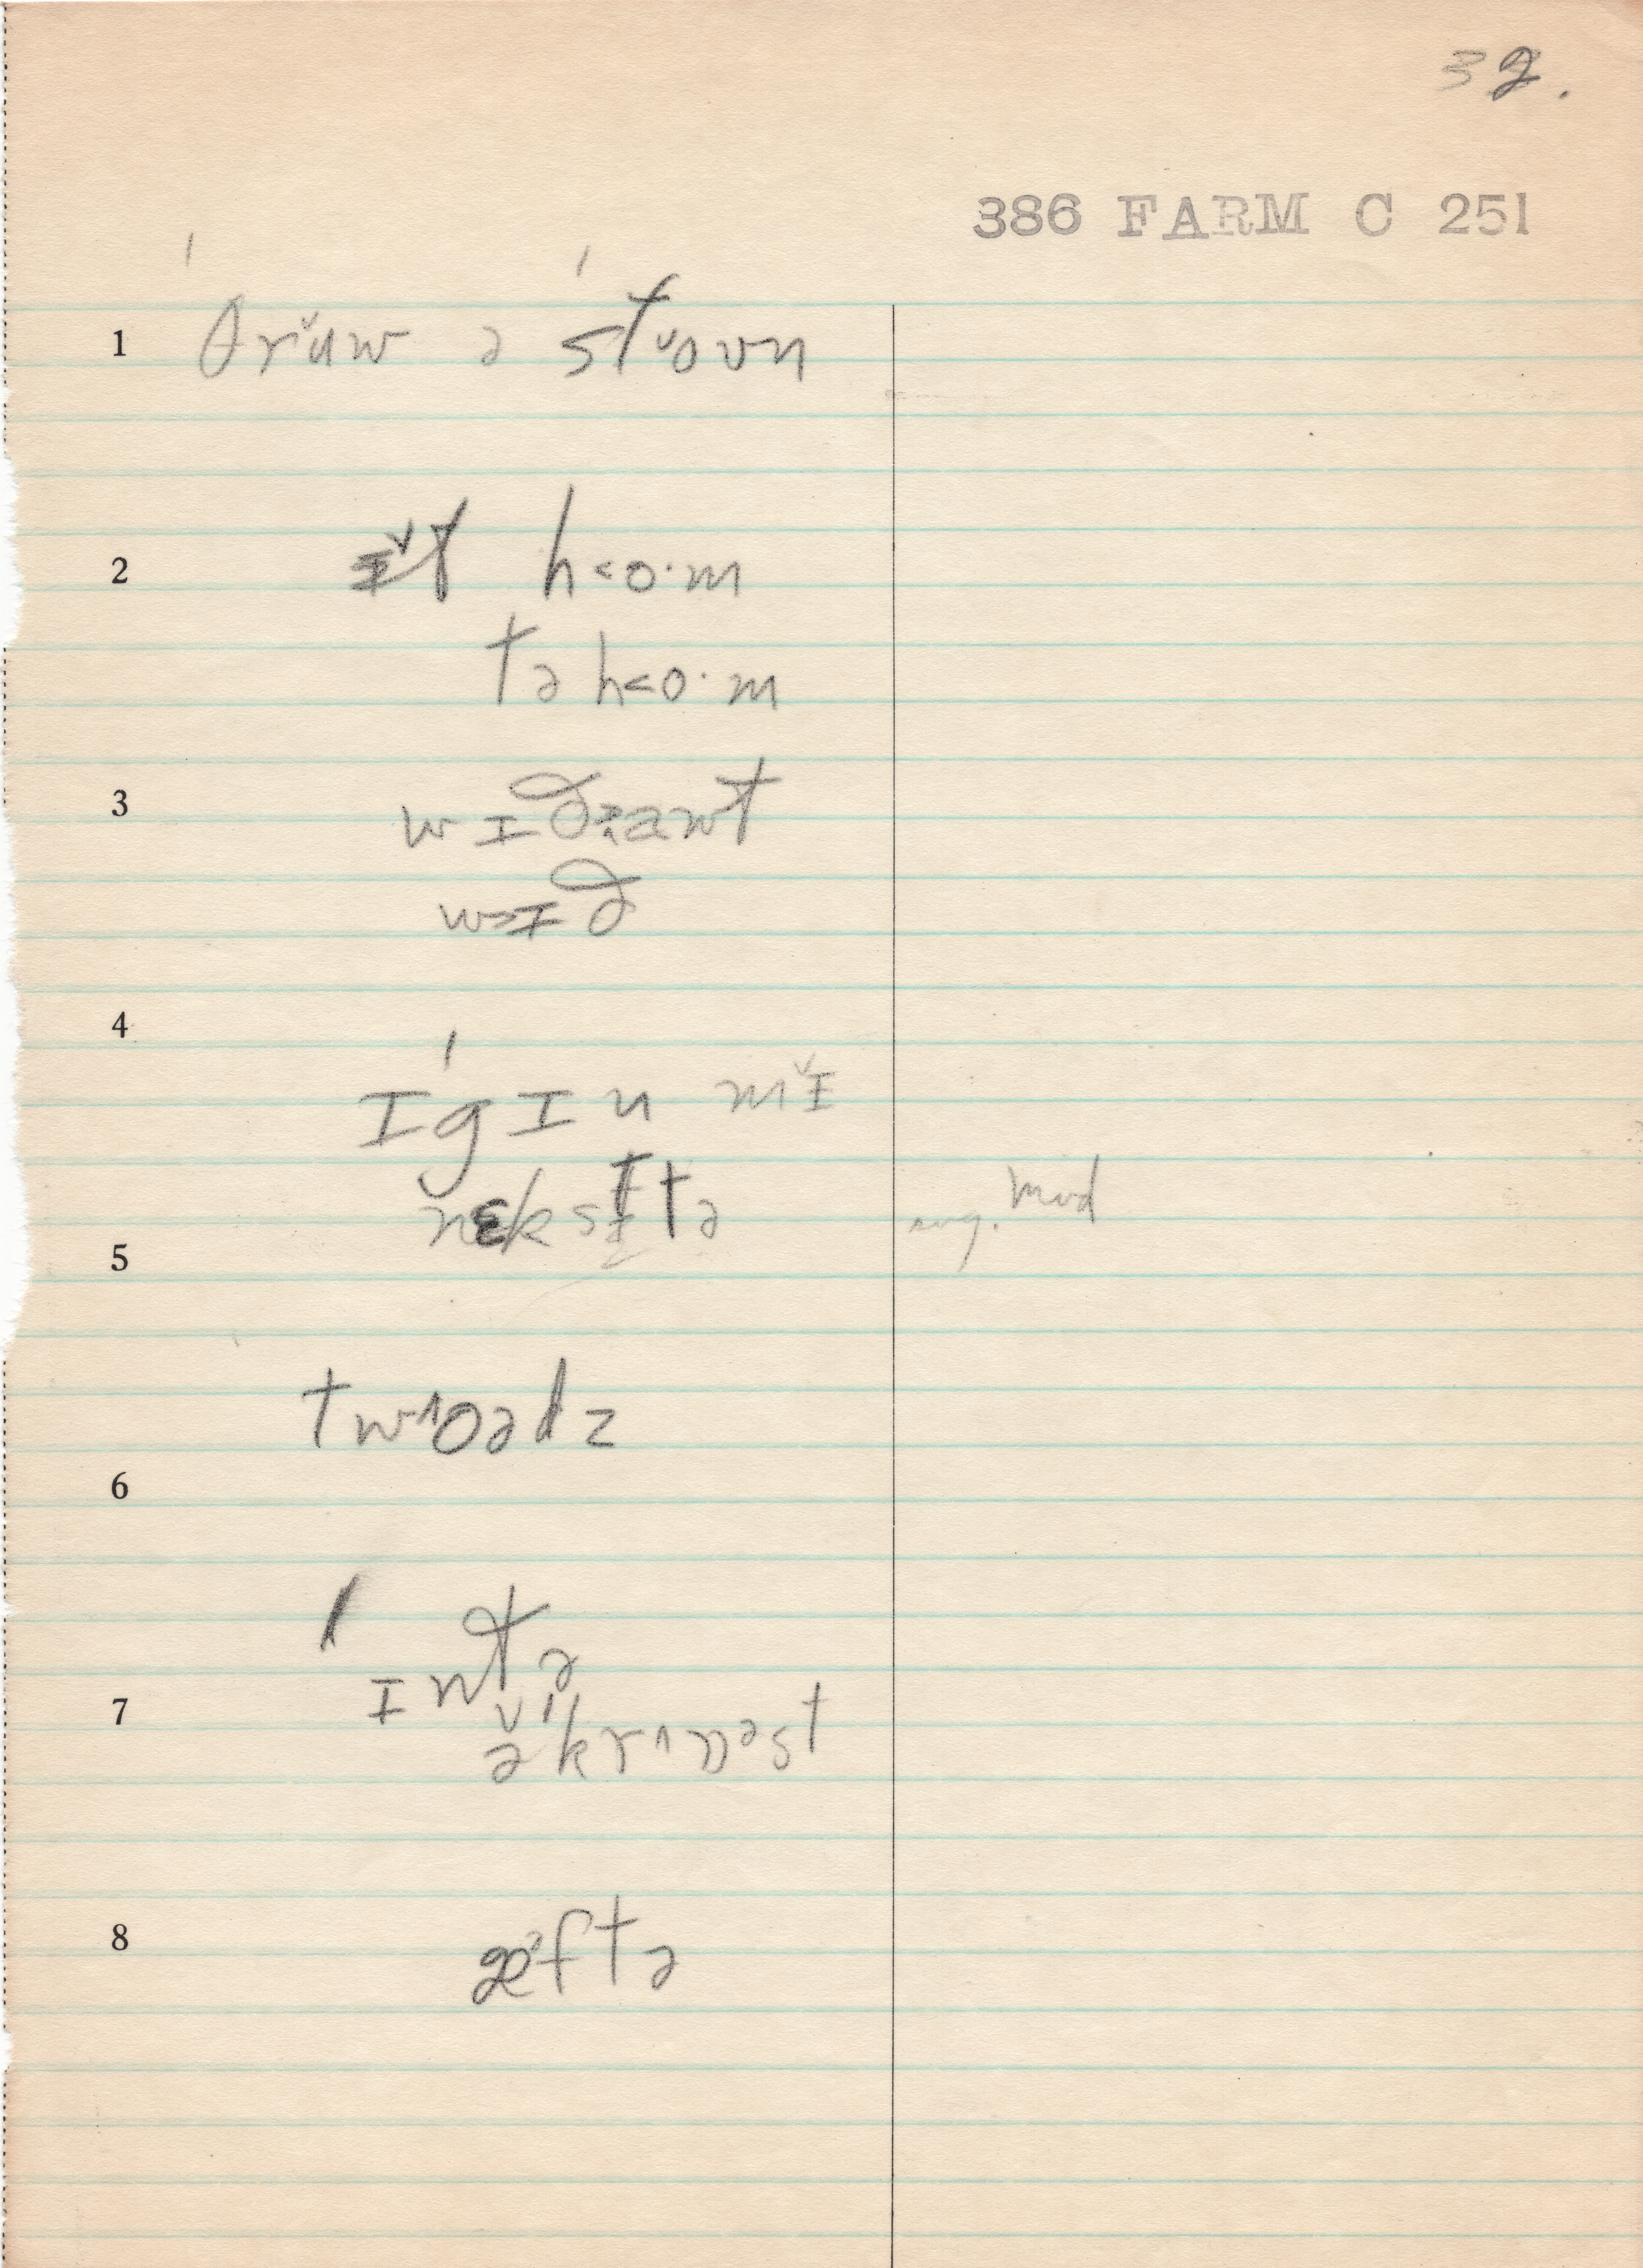 32.
386 FARM C 251
1 ˈθrɯ̌w ə ˈstᵛoʊn
2 ɪ̌t h˂o·m
tə h˂o·m
3 wɪðzawt
w>ɪð
4 ɪˈgɪn mɪ̌
nɛksɪtə
sug. mod
5
tw^oədz
6
ˈɪntə
7 ə̌ˈkr^nᵊst
8 æ^ftə